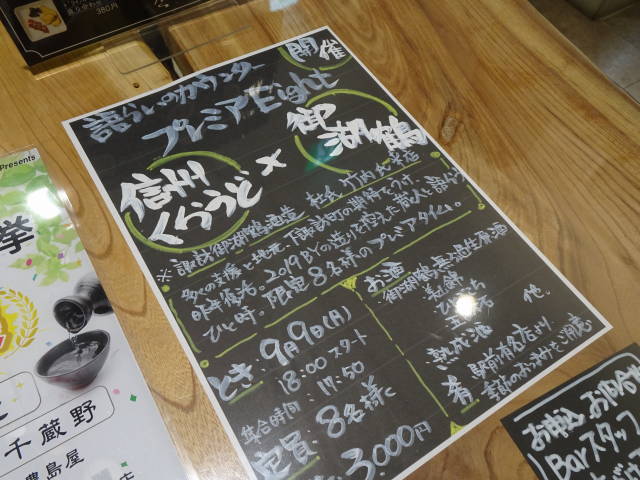 盛り合わせ
380円
開催
語らいのカウンター
プレミアEight
信州くらうど×御湖鶴
※諏訪御湖鶴酒造 杜氏 竹内氏 来店
多くの支援と地元、下諏訪町の期待をうけ
昨年復活。2019BYの造りを控えた蔵人と語らう
ひと時。限定8名様のプレミアタイム。
とき：9月9日(月)
18:00スタート
集合時間：17:50
定員：8名様
3,000円
お酒
御湖鶴 無濾過生原酒
他。
熟成酒
肴 駅前有名店より
季節のおつまみをご用意
お申込 お問合せ
Barスタッフ
Presents
挙
千蔵野
豊島屋
店